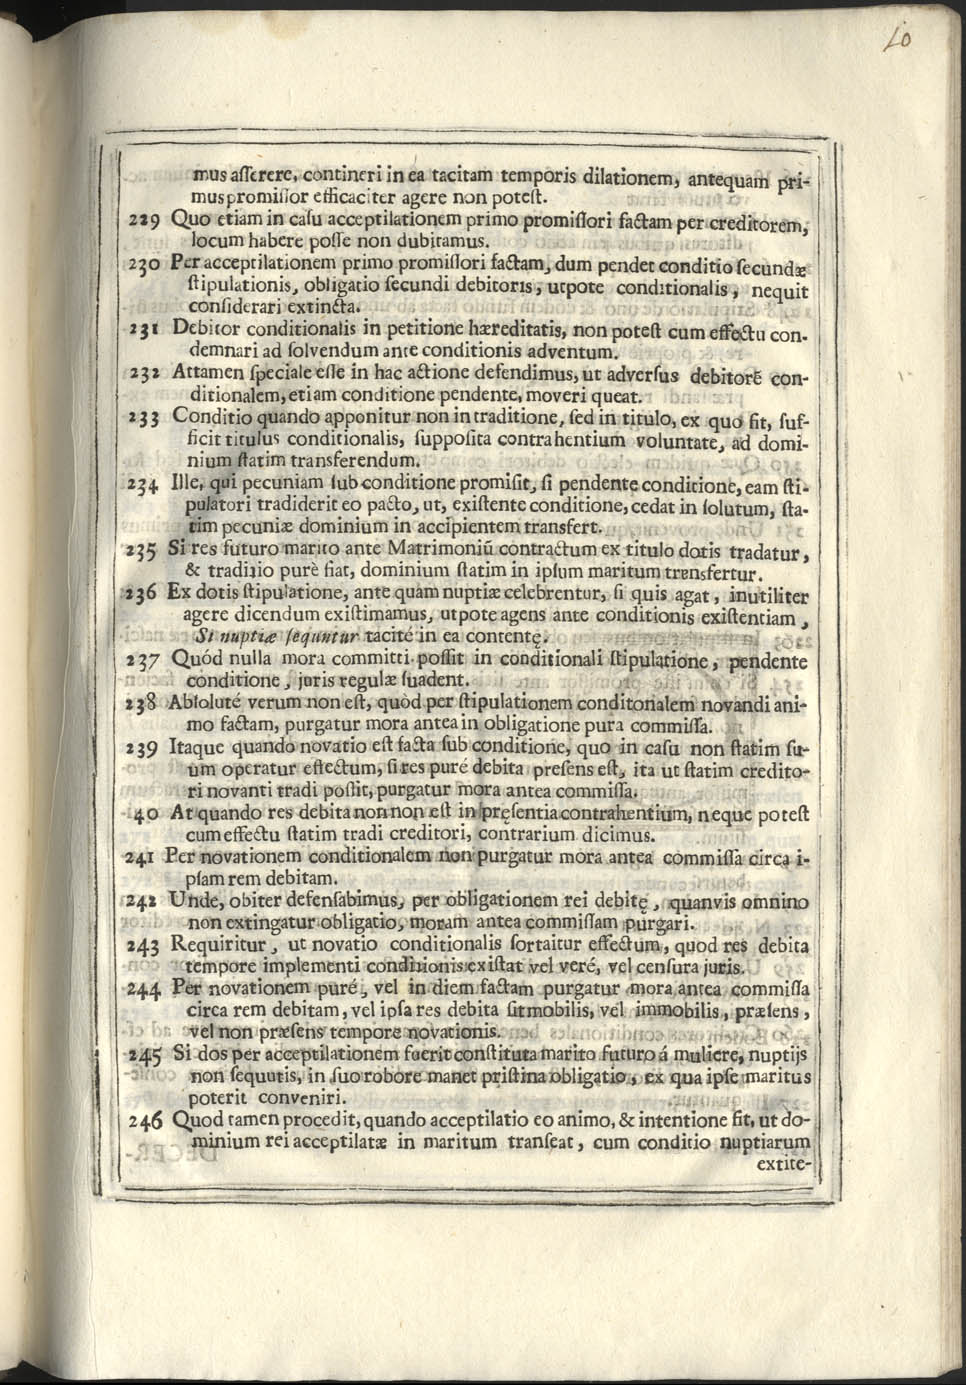 10
mus asserere, contineri in ea tacitam temporis dilationem, antequam pri-
mus promissor efficaciter agere non potest.
229 Quo etiam in casu acceptilationem primo promissori factam per creditorem,
locum habere posse non dubitamus.
230 Per acceptilationem primo promissori factam, dum pendet conditio secundæ
stipulationis, obligatio secundi debitoris, utpote conditionalis, nequit
considerari extincta.
231 Debitor conditionalis in petitione hæreditatis, non potest cum effectu con-
demnari ad solvendum ante conditionis adventum.
232 Attamen speciale esse in hac actione defendimus, ut adversus debitorē con-
ditionalem, etiam conditione pendente, moveri queat.
233 Conditio quando apponitur non in traditione, sed in titulo, ex quo fit, suf-
ficit titulus conditionalis, supposita contrahentium voluntate, ad domi-
nium statim transferendum.
234 Ille, qui pecuniam sub conditione promisit, si pendente conditione, eam sti-
pulatori tradiderit eo pacto, ut, existente conditione, cedat in solutum, sta-
tim pecuniæ dominium in accipientem transfert.
235 Si res futuro marito ante Matrimoniū contractum ex titulo dotis tradatur,
& traditio purè fiat, dominium statim in ipsum maritum transfertur.
236 Ex dotis stipulatione, ante quàm nuptiæ celebrentur, si quis agat, inutiliter
agere dicendum existimamus, utpote agens ante conditionis existentiam,
Si nuptiæ sequntur tacité in ea contentę.
237 Quód nulla mora committi possit in conditionali stipulatione, pendente
conditione, juris regulæ suadent.
238 Absoluté verum non est, quòd per stipulationem conditonalem novandi ani-
mo factam, purgatur mora antea in obligatione pura commissa.
239 Itaque quando novatio est facta sub conditione, quo in casu non statim su-
um operatur effectum, si res puré debita presens est, ita ut statim credito-
ri novanti tradi possit, purgatur mora antea commissa.
40 At quando res debita non non est in pręsentia contrahentium, neque potest
cum effectu statim tradi creditori, contrarium dicimus.
241 Per novationem conditionalem non purgatur mora antea commissa circa i-
psam rem debitam.
242 Unde, obiter defensabimus, per obligationem rei debitę, quanvis omnino
non extingatur obligatio, moram antea commissam purgari.
243 Requiritur, ut novatio conditionalis sortaitur effectum, quod res debita
tempore implementi conditionis existat vel veré, vel censura juris.
244 Per novationem puré, vel in diem factam purgatur mora antea commissa
circa rem debitam, vel ipsa res debita sit mobilis, vel immobilis, præsens,
vel non præsens tempore novationis.
245 Si dos per acceptilationem fuerit constituta marito futuro á muliere, nuptijs
non sequutis, in suo robore manet pristina obligatio, ex qua ipse maritus
poterit conveniri.
246 Quod tamen procedit, quando acceptilatio eo animo, & intentione fit, ut do-
minium rei acceptilatæ in maritum transeat, cum conditio nuptiarum
extite-